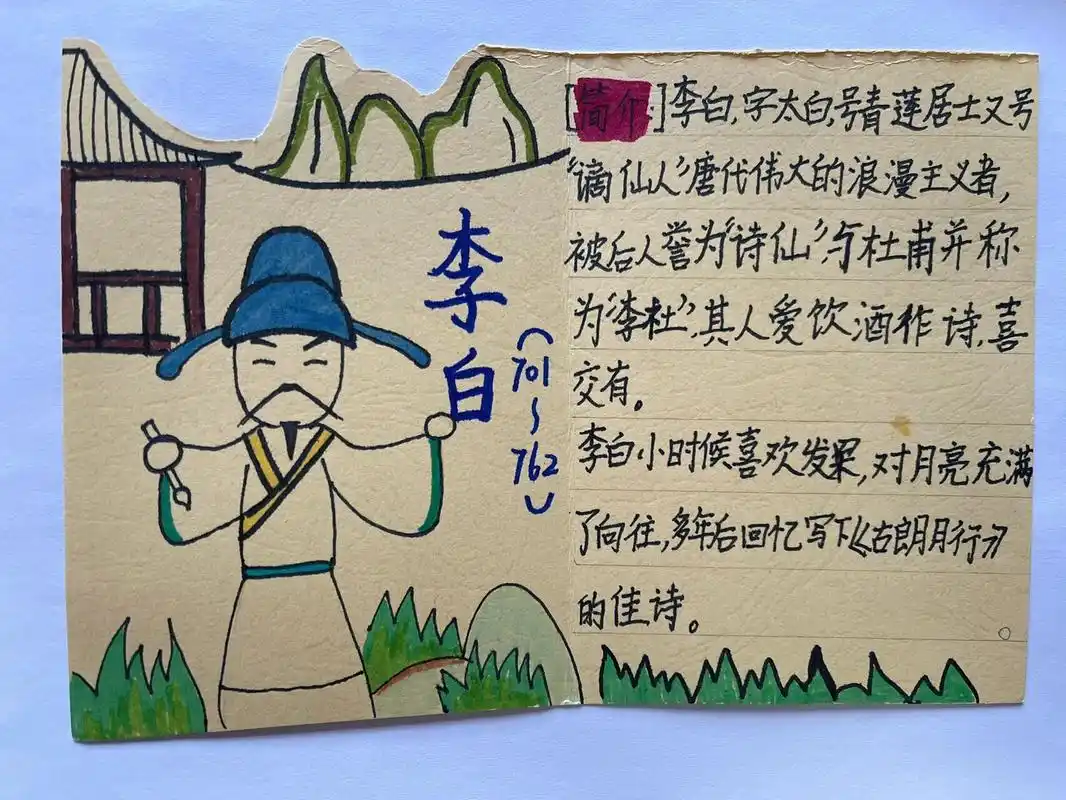 李白
(701~762)
[简介]李白,字太白,号青莲居士又号
“谪仙人”唐代伟大的浪漫主义者,
被后人誉为“诗仙”与杜甫并称
为“李杜”,其人爱饮酒作诗,喜
交有。
李白小时候喜欢发呆,对月亮充满
了向往,多年后回忆写下《古朗月行》
的佳诗。